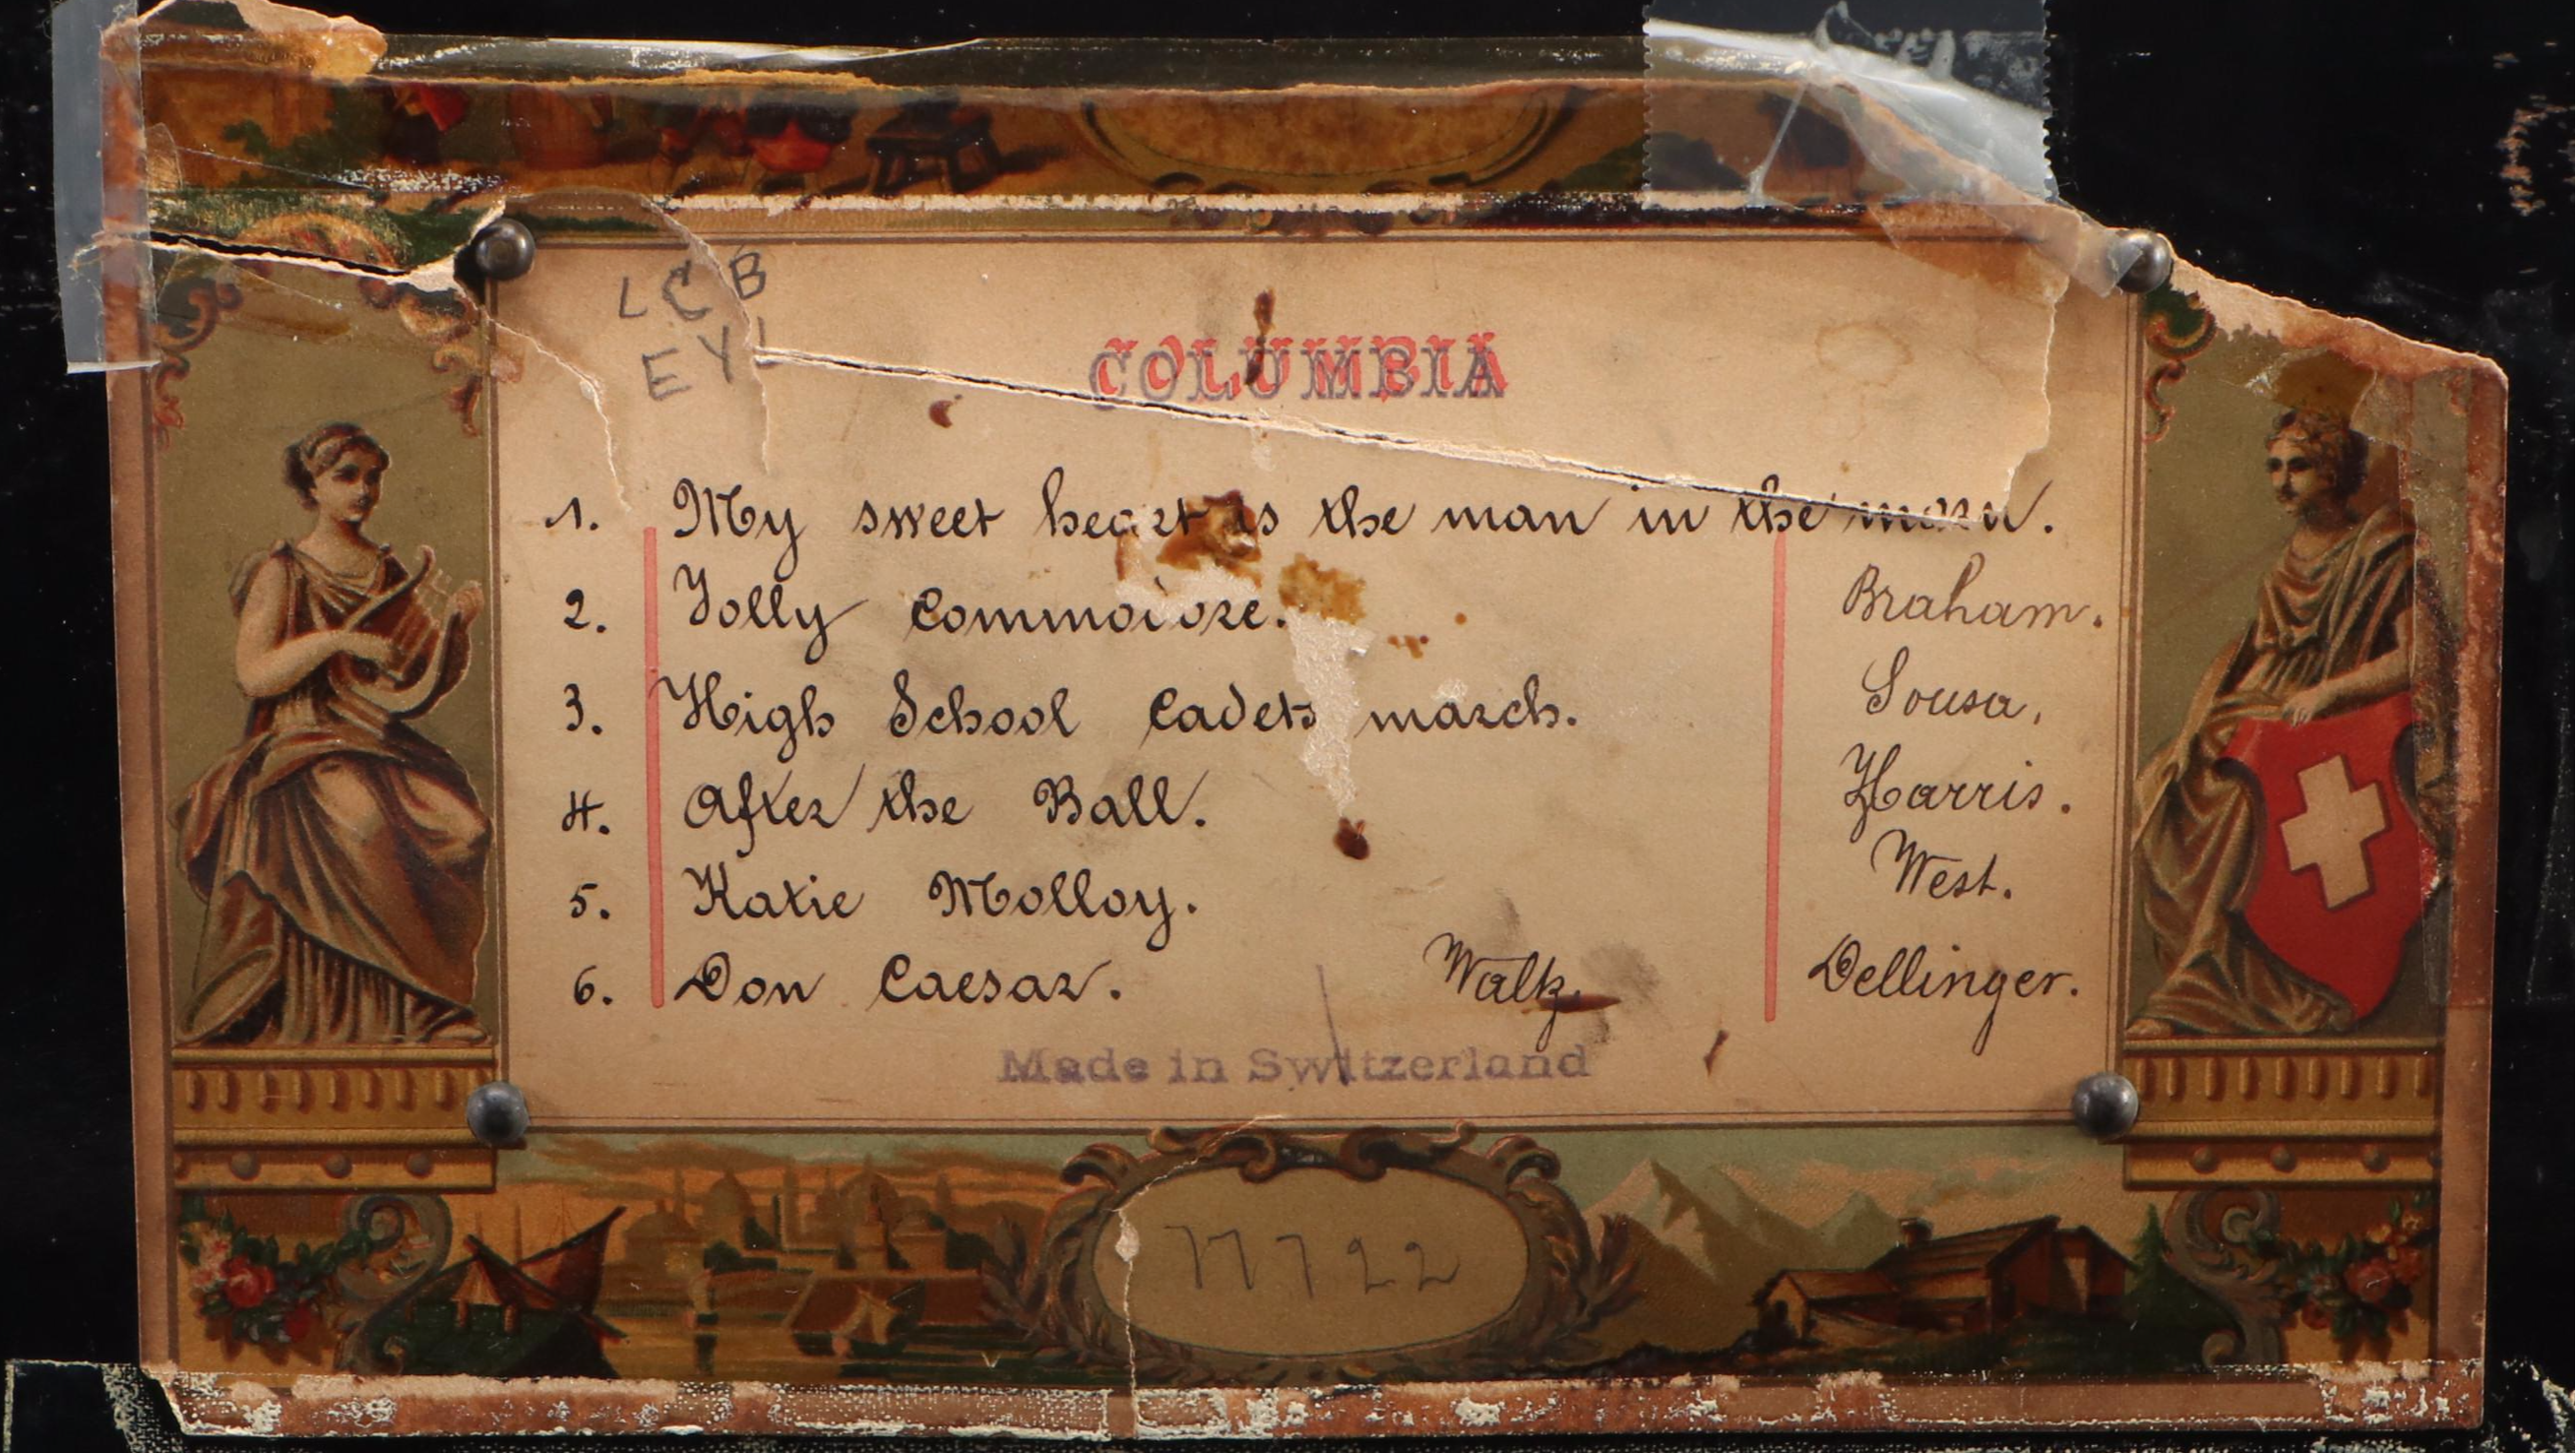 LCB
EYL
COLUMBIA
1. My sweet heart is the man in the moon.
2. Jolly Commodore. Braham.
3. High School Cadets march. Sousa.
4. After the Ball. Harris.
5. Katie Molloy. West.
6. Don Caesar. Waltz. Dellinger.
Made in Switzerland
17722